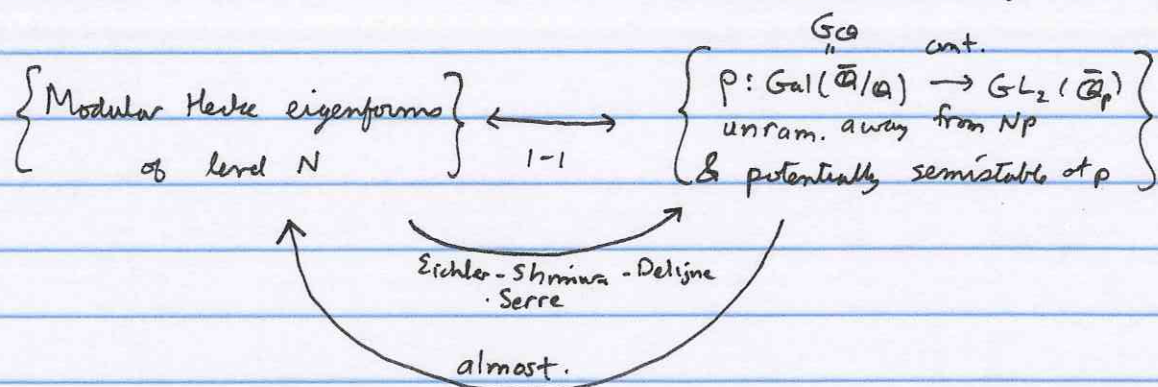 G_Q cont.
"
{Modular Hecke eigenforms of level N} ⟷ 1-1 {ρ: Gal(Q̄/Q) → GL₂(Q̄_p)
unram. away from Np
& potentially semistable at p}
Eichler-Shimura-Deligne
-Serre
almost.